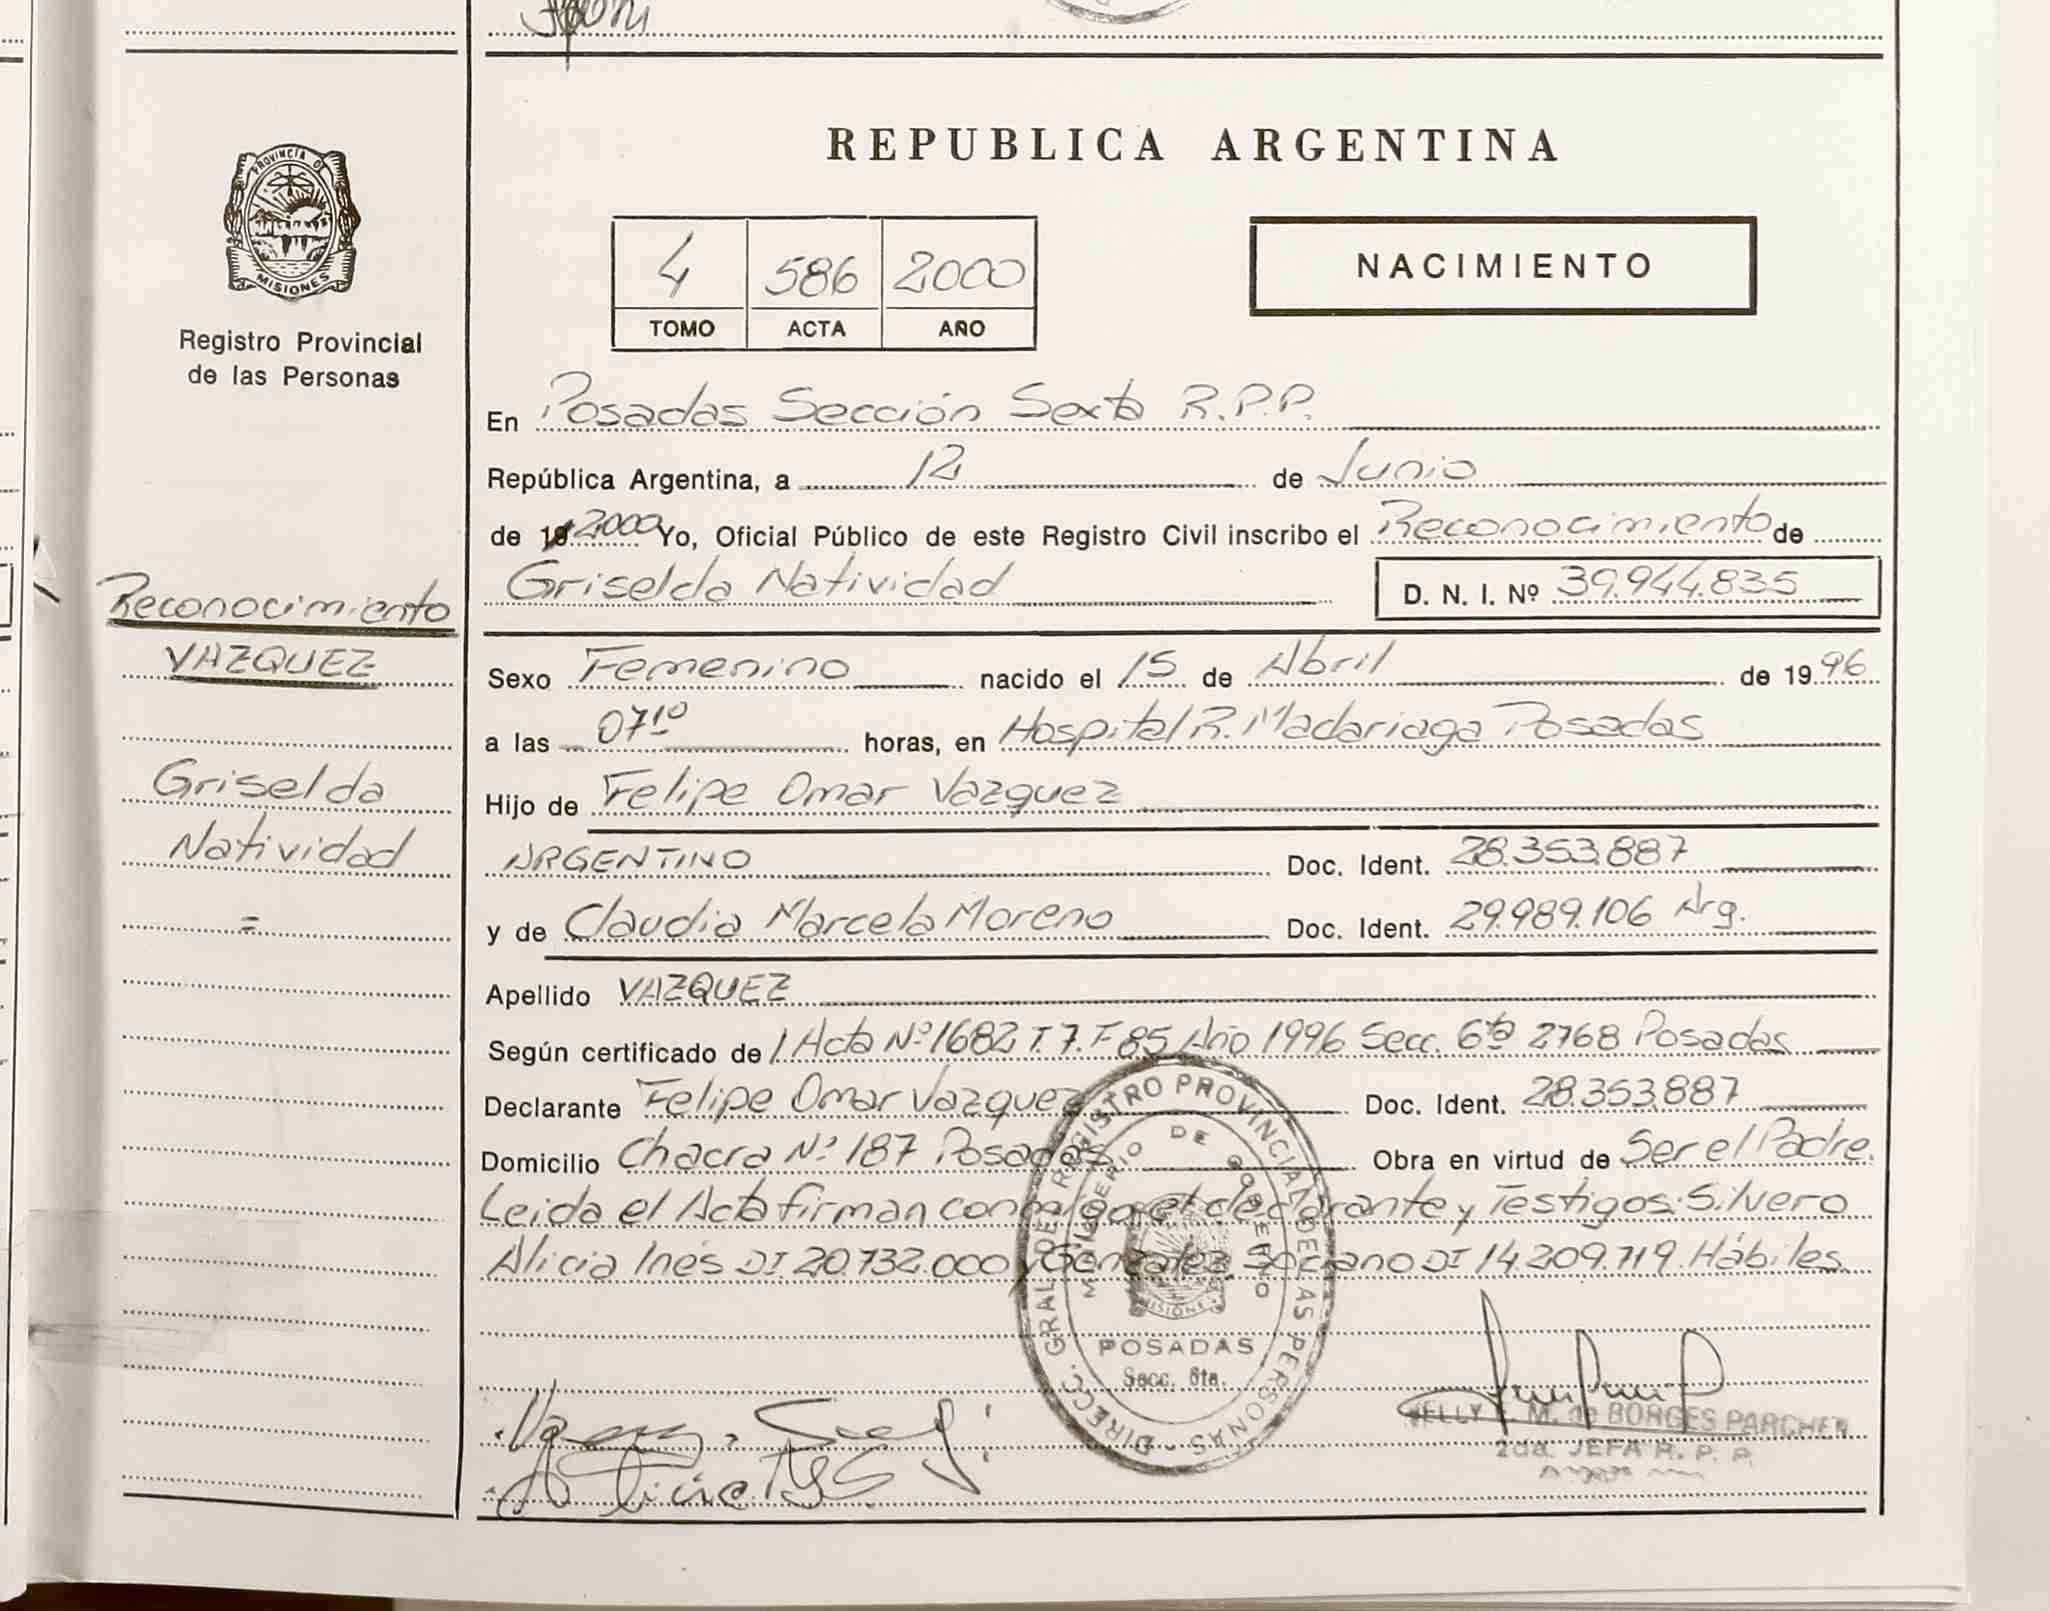 PROVINCIA DE
MISIONES
Registro Provincial
de las Personas
Reconocimiento
VAZQUEZ
Griselda
Natividad
=
REPUBLICA ARGENTINA
4 586 2000
TOMO ACTA AÑO
NACIMIENTO
En Posadas Sección Sexta R.P.P.
República Argentina, a 12 de Junio
de 19 2000 Yo, Oficial Público de este Registro Civil inscribo el Reconocimiento de
Griselda Natividad D. N. I. Nº 39.944.835
Sexo Femenino nacido el 15 de Abril de 1996
a las 07¹⁰ horas, en Hospital R. Madariaga Posadas
Hijo de Felipe Omar Vazquez
ARGENTINO Doc. Ident. 28.353.887
y de Claudia Marcela Moreno Doc. Ident. 29.989.106 Arg.
Apellido VAZQUEZ
Según certificado de 1. Acta Nº 1682 T. 7. F 85 Año 1996 Secc. 6ta 2768 Posadas
Declarante Felipe Omar Vazquez Doc. Ident. 28.353.887
Domicilio Chacra Nº 187 Posadas Obra en virtud de Ser el Padre.
Leida el Acta firman conmigo el declarante y Testigos: Silvero
Alicia Inés DI 20.732.000 y Gonzalez DI 14.209.719. Hábiles.
DIREC. GRAL DE REGISTRO PROVINCIAL DE LAS PERSONAS
MINISTERIO DE GOBIERNO
MISIONES
POSADAS
Secc. 6ta.
M. de BORGES PARCHEN
2da. JEFA R. P. P.